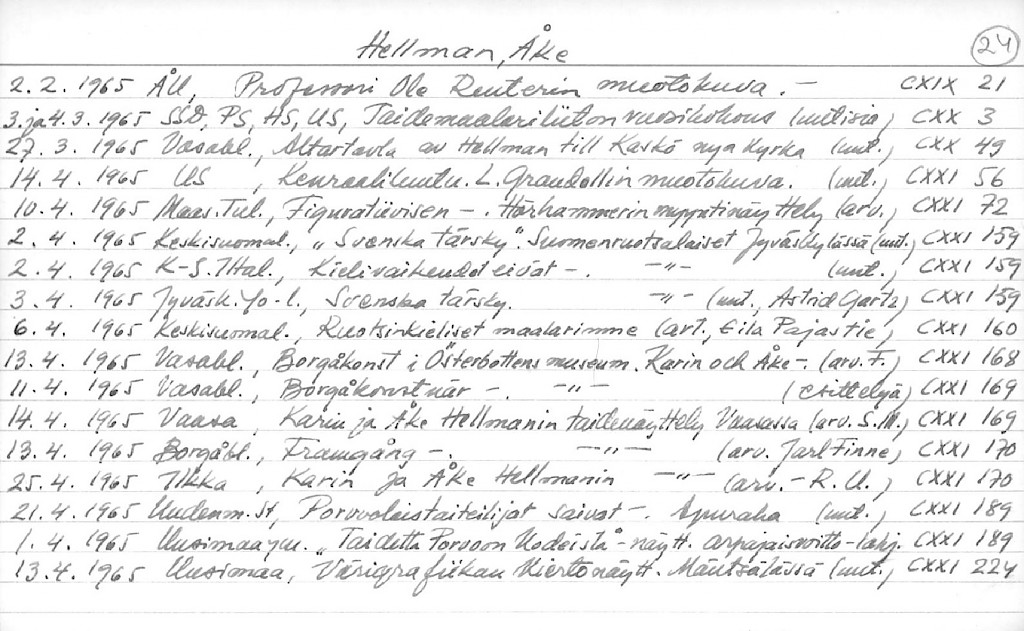 Hellman, Åke
24
2.2. 1965 ÅU, Professori Ole Reuterin muotokuva. – CXIX 21
3. ja 4.3. 1965 SSD, PS, HS, US, Taidemaalariliiton vuosikokous (uutisia) CXX 3
27. 3. 1965 Vasabl., Altartavla av Hellman till Kaskö nya kyrka (uut.) CXX 49
14. 4. 1965 US, Kenraaliluutn. L. Grandellin muotokuva. (uut.) CXXI 56
10. 4. 1965 Maas. Tul., Figuratiivisen –. Hörhammerin myyntinäyttely (arv.) CXXI 72
2. 4. 1965 Keskisuomal., "Svenska tärsky". Suomenruotsalaiset Jyväskylässä (uut.) CXXI 159
2. 4. 1965 K-S. Iltal., Kielivaikeudet eivät –. –"– (uut.) CXXI 159
3. 4. 1965 Jyväsk. Yo-l., Svenska tärsky. –"– (uut., Astrid Gartz) CXXI 159
6. 4. 1965 Keskisuomal., Ruotsinkieliset maalarimme (art., Eila Pajastie) CXXI 160
13. 4. 1965 Vasabl., Borgåkonst i Österbottens museum. Karin och Åke –. (arv. F.) CXXI 168
11. 4. 1965 Vasabl., Borgåkonstnär –. –"– (esittelyä) CXXI 169
14. 4. 1965 Vaasa, Karin ja Åke Hellmanin taidenäyttely Vaasassa (arv. S.M.) CXXI 169
13. 4. 1965 Borgåbl., Framgång –. –"– (arv. Jarl Finne) CXXI 170
25. 4. 1965 Ilkka, Karin ja Åke Hellmanin –"– (arv. – R.U.) CXXI 170
21. 4. 1965 Uudenm. st, Porvoolaistaiteilijat saivat –. Apuraha (uut.) CXXI 189
1. 4. 1965 Uusimaa ym. "Taidetta Porvoon Kodeista" – näytt. arpajaisvoitto – lahj. CXXI 189
13. 4. 1965 Uusimaa, Värigrafiikan Kiertonäytt. Mäntsälässä (uut.) CXXI 224